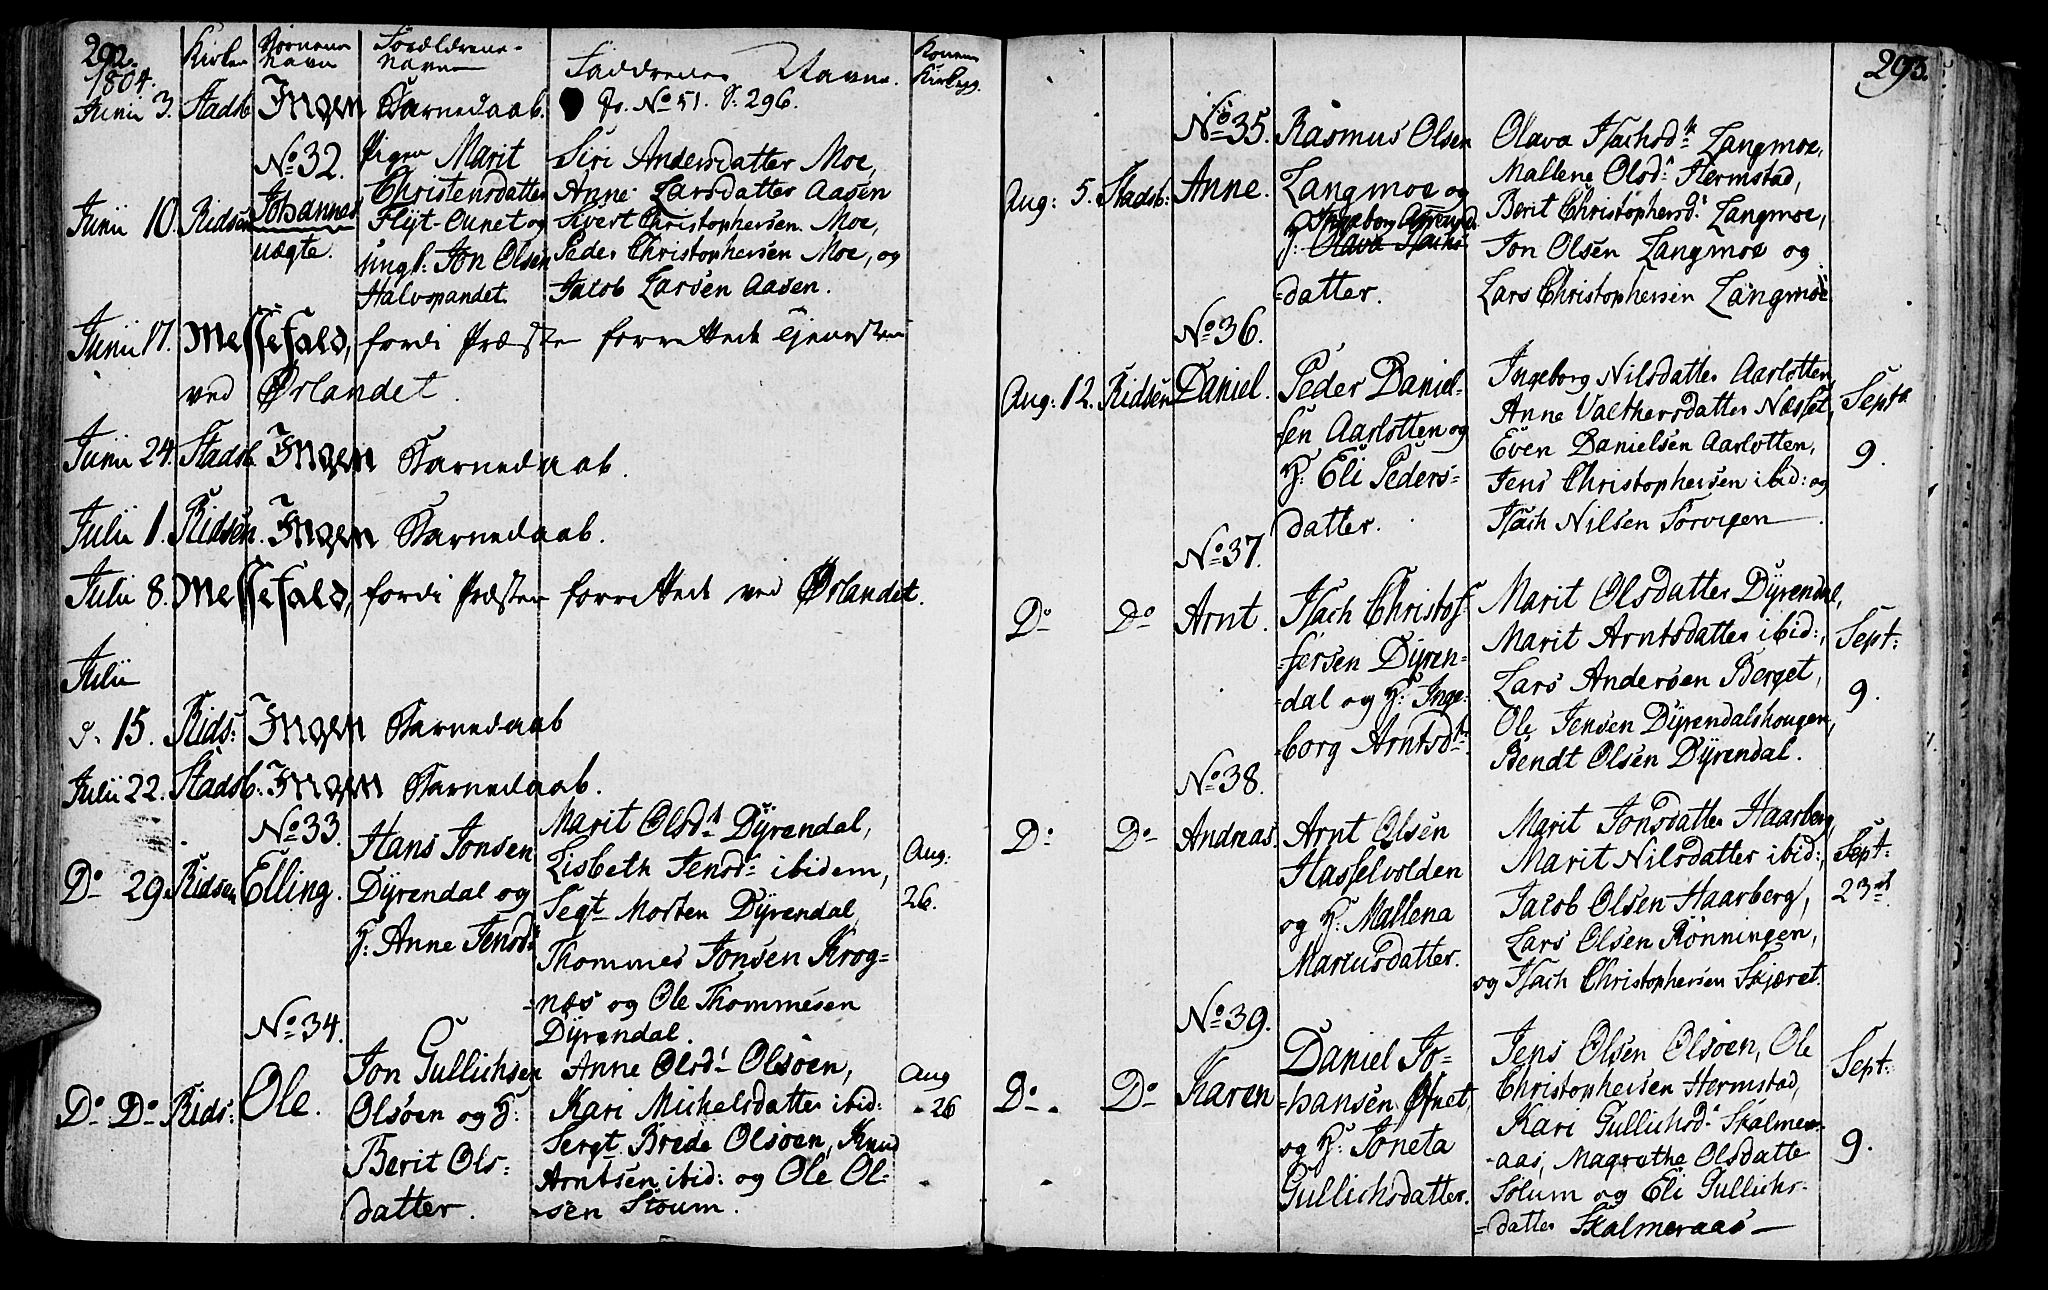 292.
1804.
Kirken
Börnenes Navn
Forældrenes Navne
Faddrenes Navne.
Konens Kirkegg.
Junii 3. Stadsb Ingen Barnedaab. No 51. S. 296.
No 32.
Junii 10. Ridsen Johannes
uægte.
Pigen Marit
Christensdatter
Flyt-Eunet og
ungk: Jon Olsen
Halvopandet
Siri Andersdatter Moe,
Anne Larsdatter Aasen
Sivert Christophersen Moe,
Peder Christophersen Moe, og
Jacob Larsen Aasen.
Junii 17. Messefald, fordi Præsten forrettede Tjenesten
ved Ørlandet.
Junii 24. Stadsb Ingen Barnedaab.
Julii 1. Ridsen. Ingen Barnedaab.
Julii 8. Messefald, fordi Præsten forrettede ved Ørlandet.
Julii
d. 15. Rids: Ingen Barnedaab
Julii 22. Stadsb: Ingen Barnedaab.
No 33.
Do 29. Ridsen Elling.
Hans Jonsen
Dÿrendal og
H: Anne Jensdr
Marit Olsdt Dÿrendal,
Lisbeth Jensdr ibidem,
Segt Morten Dÿrendal,
Thommes Jonsen Krog=
=næs og Ole Thommesen
Dÿrendal.
Aug:
26.
No 34.
Do Do Rids: Ole.
Jon Gullichsen
Olsöen og H:
Berit Ols=
datter.
Anne Olsdt Olsöen,
Kari Michelsdatter ibid:
Sergt Brede Olsöen, Knud
Arntsen ibid: og Ole Ol=
=sen Stoum.
Aug
26
293.
No 35.
Aug: 5. Stadsb: Anne.
Rasmus Olsen
Langmoe og
Ingeborg Amundsd.
H: Olava Isachs
=datter.
Olava Isachsdr Langmoe,
Mallene Olsdr Hermstad,
Berit Christophersdr Langmoe,
Jon Olsen Langmoe og
Lars Christophersen Langmoe
No 36.
Aug: 12. Ridsen Daniel.
Peder Daniel=
sen Aarlotten og
H: Eli Peders=
datter.
Ingeborg Nilsdatter Aarlotten
Anne Valthersdatter Næsset,
Even Danielsen Aarlotten,
Jens Christophersen ibid: og
Isach Nilsen Sorvigen
Septr
9.
No 37.
Do Do Arnt.
Isach Christof=
=fersen Dÿren=
=dal og H: Inge=
=borg Arntsdr
Marit Olsdatter Dÿrendal,
Marit Arntsdatter ibid:,
Lars Andersen Berget,
Ole Jensen Dÿrendalshougen,
Bendt Olsen Dÿrendal.
Sept:
9.
No 38.
Do Do Andreas.
Arnt Olsen
Hasselvolden
og H: Mallena
Mariusdatter.
Marit Jonsdatter Haarberg,
Marit Nilsdatter ibid:,
Jacob Olsen Haarberg,
Lars Olsen Rönningen,
og Isach Christophersen Skjæret.
Sept:
23
No 39.
Do Do Karen
Daniel Jo=
=hansen Øfnet
og H: Joneta
Gullichsdatter.
Jens Olsen Olsöen, Ole
Christophersen Hermstad,
Kari Gullichsdr Skalmer=
=aas, Magrethe Olsdatter
Solum og Eli Gullichs=
=datter Skalmeraas
Sept:
9.